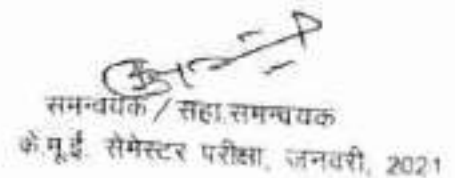 समन्वयक / सहा.समन्वयक
के.मू.ई. सेमेस्टर परीक्षा, जनवरी, 2021